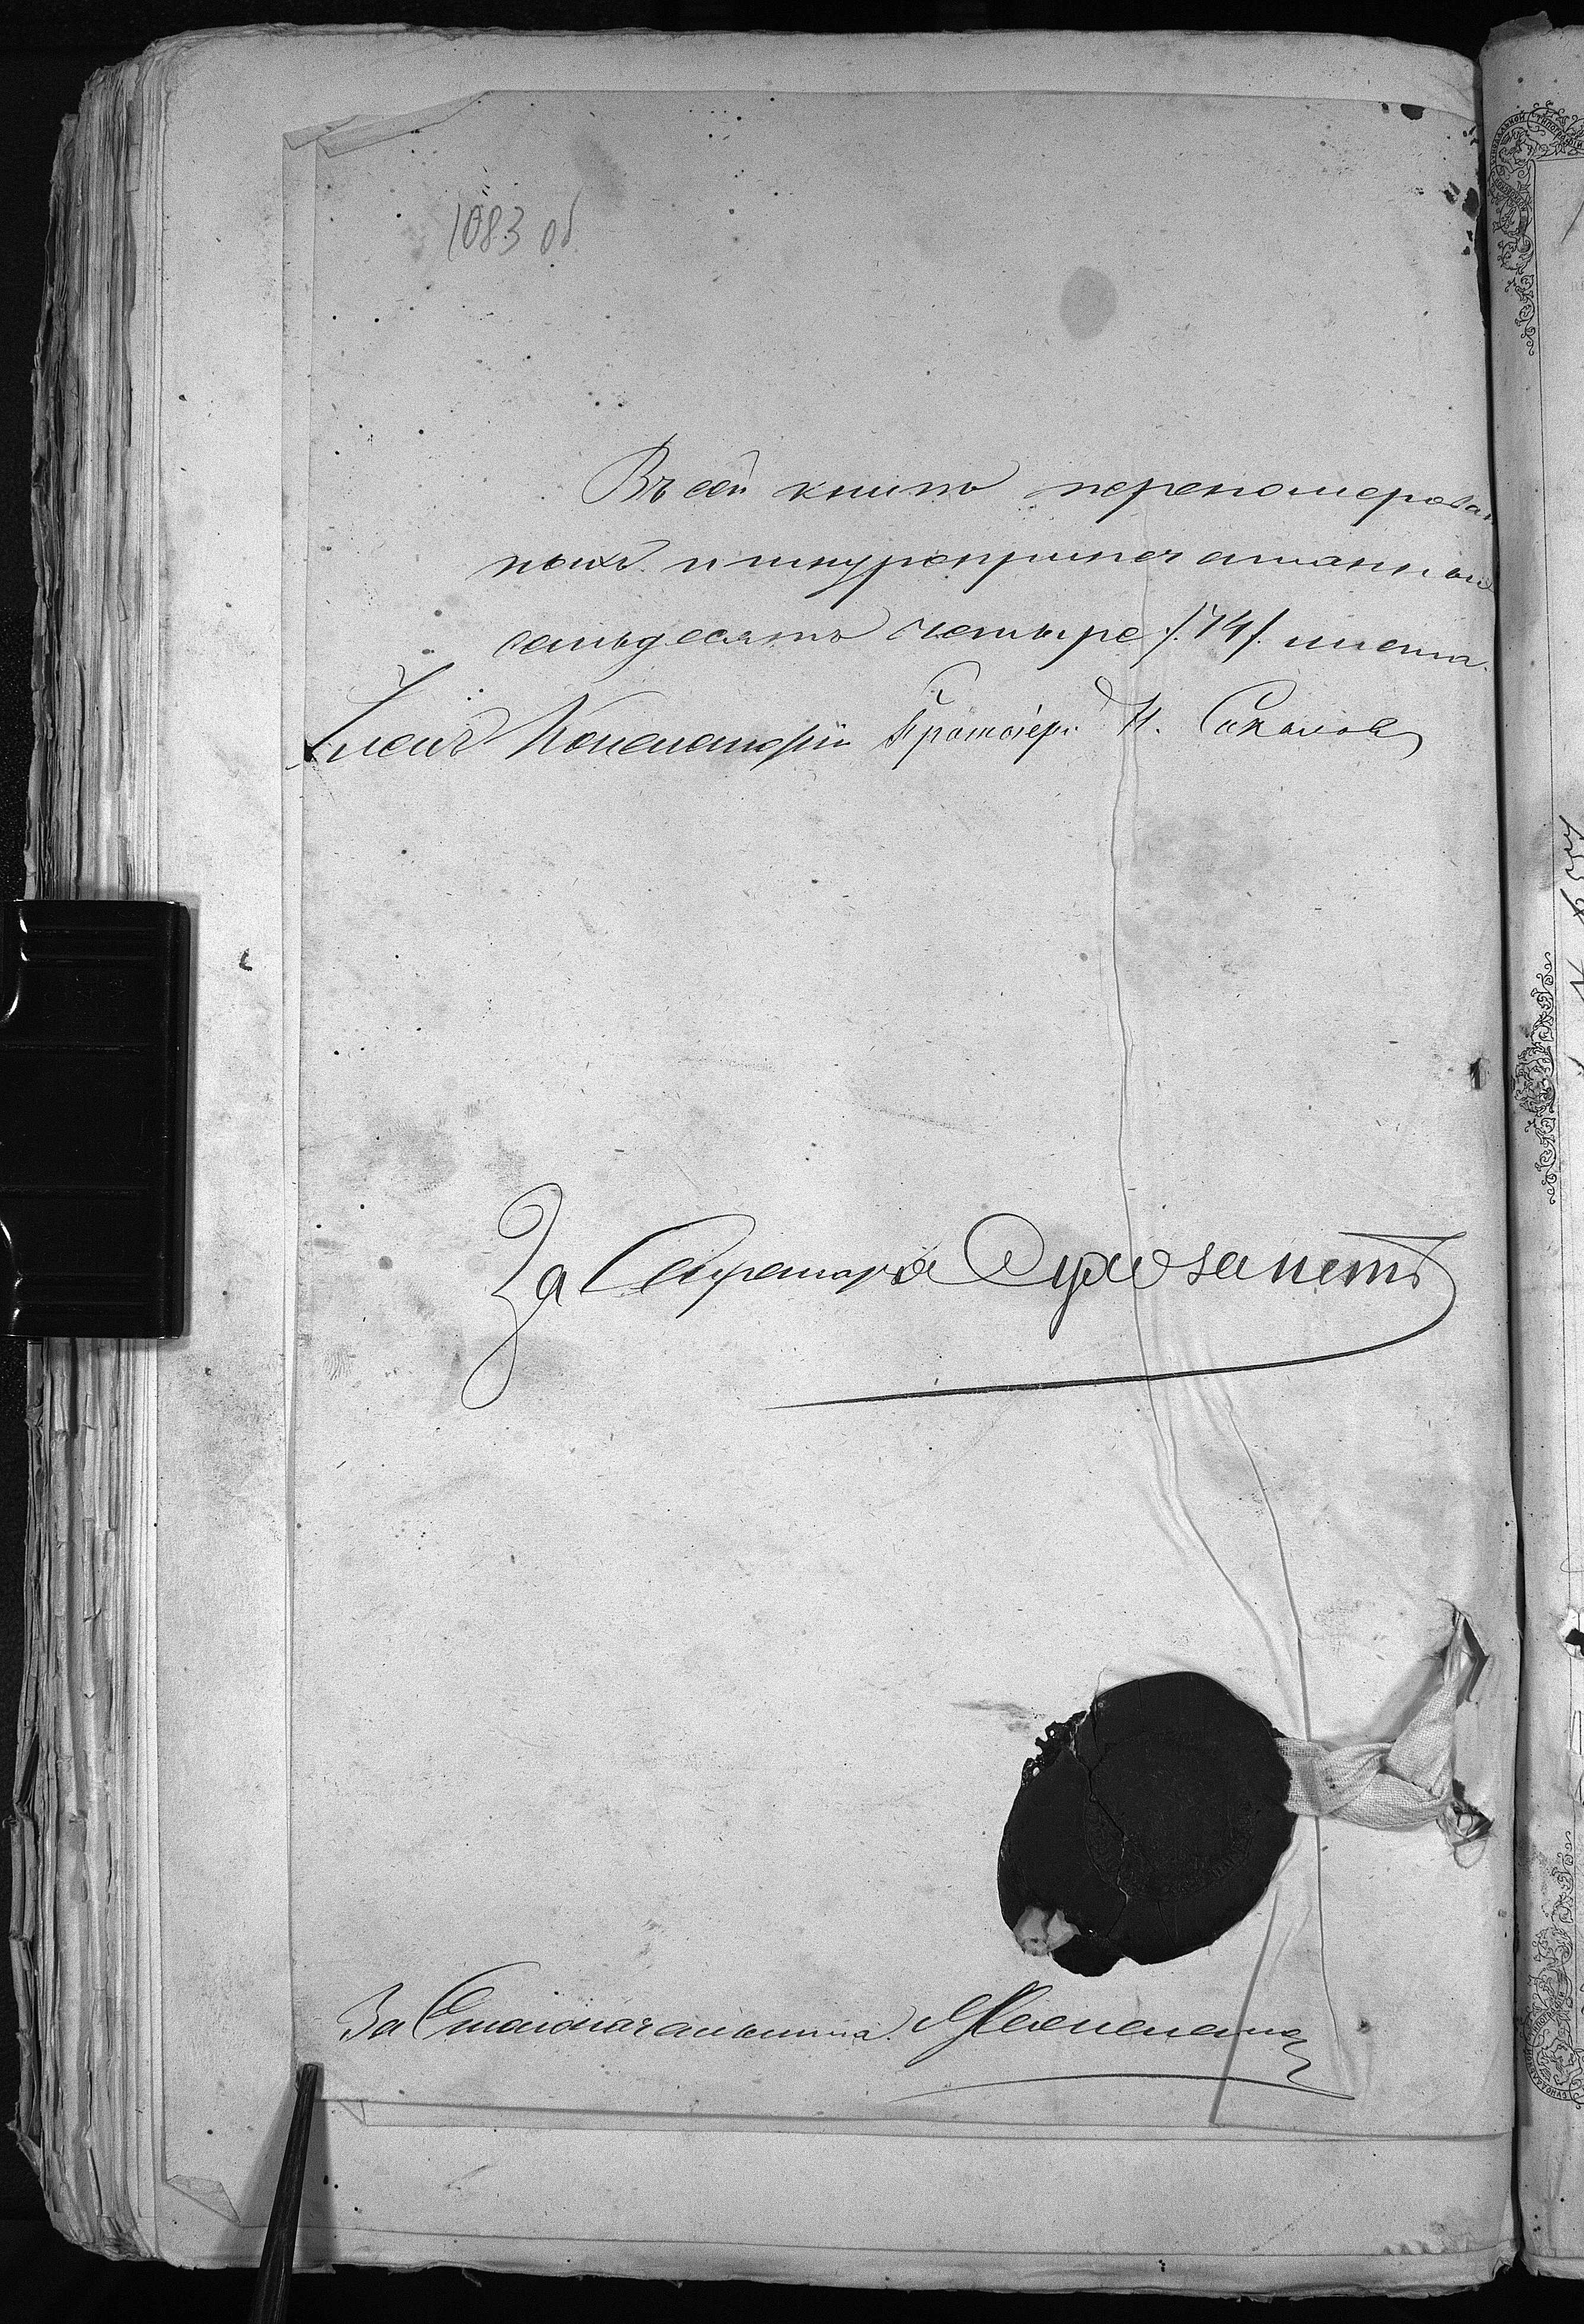 1083 об
Въ сей книгѣ перенумерован
ныхъ и шнуроприпечатанныхъ
семьдесятъ четыре /:74/: листа.
Членъ Консисторіи Протоіер. Н. Соколовъ
За Секретаря Сухозанетъ
За Столоначальника